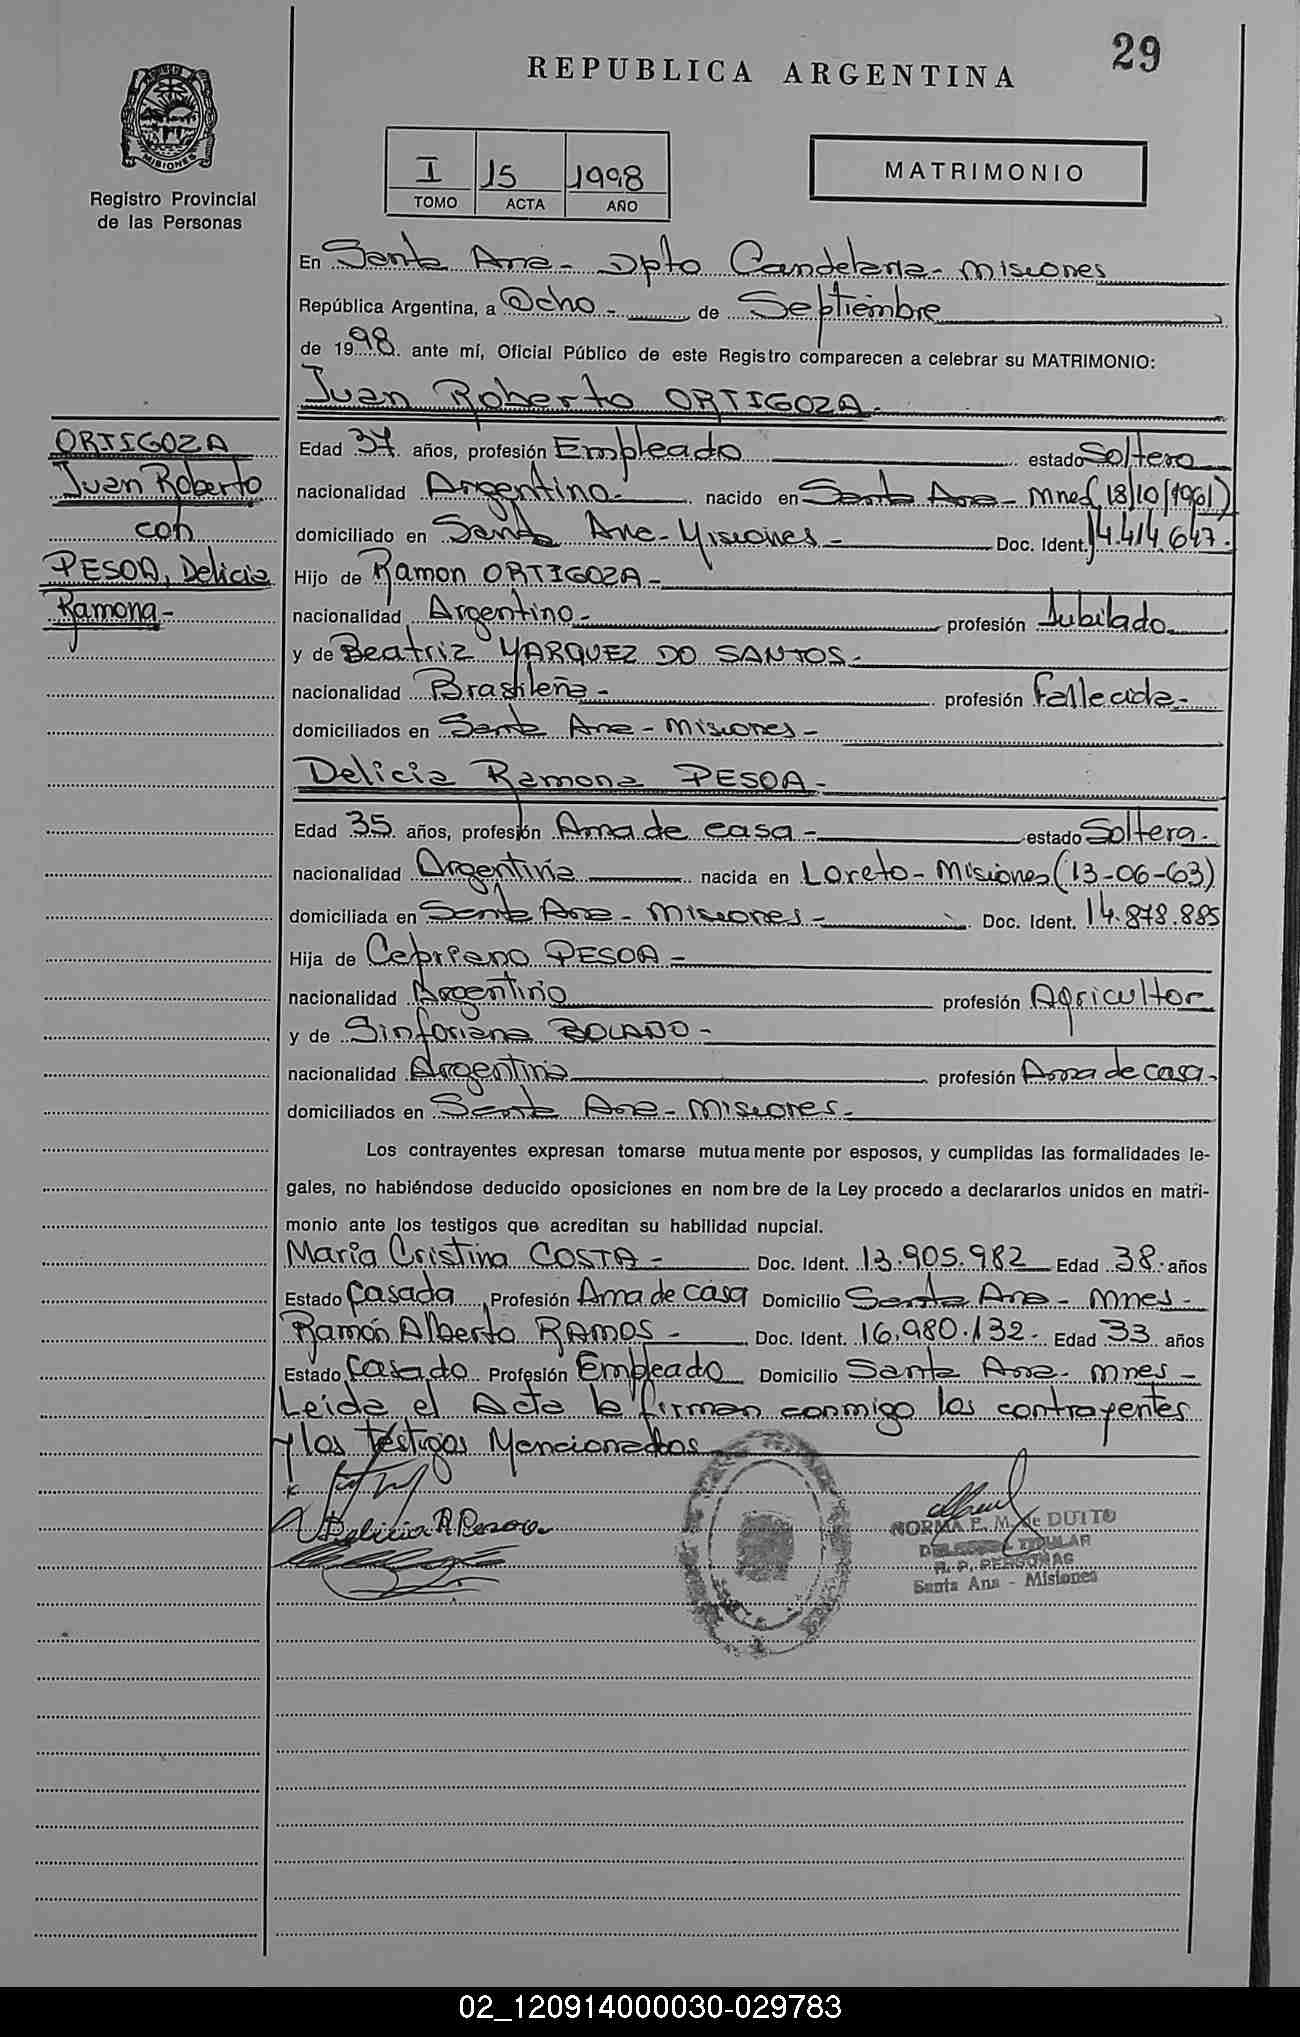 29
REPUBLICA ARGENTINA
MISIONES
Registro Provincial
de las Personas
I 15 1998
TOMO ACTA AÑO
MATRIMONIO
En Santa Ana - Dpto Candelaria - Misiones
República Argentina, a Ocho - de Septiembre
de 1998 ante mí, Oficial Público de este Registro comparecen a celebrar su MATRIMONIO:
Juan Roberto ORTIGOZA -
ORTIGOZA
Juan Roberto
con
PESOA, Delicia
Ramona -
Edad 37 años, profesión Empleado estado Soltero
nacionalidad Argentino - nacido en Santa Ana - Mnes (18/10/1961)
domiciliado en Santa Ana - Misiones - Doc. Ident. 14.414.647 -
Hijo de Ramon ORTIGOZA -
nacionalidad Argentino - profesión Jubilado
y de Beatriz MARQUEZ DO SANTOS -
nacionalidad Brasileña - profesión Fallecida -
domiciliados en Santa Ana - Misiones -
Delicia Ramona PESOA -
Edad 35 años, profesión Ama de casa - estado Soltera -
nacionalidad Argentina nacida en Loreto - Misiones (13-06-63)
domiciliada en Santa Ana - Misiones - Doc. Ident. 14.878.885
Hija de Cepriano PESOA -
nacionalidad Argentino profesión Agricultor
y de Sinforiana BOLADO -
nacionalidad Argentina profesión Ama de casa -
domiciliados en Santa Ana - Misiones -
Los contrayentes expresan tomarse mutuamente por esposos, y cumplidas las formalidades le-
gales, no habiéndose deducido oposiciones en nombre de la Ley procedo a declararlos unidos en matri-
monio ante los testigos que acreditan su habilidad nupcial.
Maria Cristina COSTA - Doc. Ident. 13.905.982 Edad 38 - años
Estado Casada Profesión Ama de casa Domicilio Santa Ana - Mnes -
Ramón Alberto RAMOS - Doc. Ident. 16.980.132 - Edad 33 años
Estado Casado Profesión Empleado Domicilio Santa Ana - Mnes -
Leida el Acta la firman conmigo los contrayentes
y los testigos Mencionados
Delicia R Pesoa
NORMA E. M. de DUTTO
DELEGADA TITULAR
R. P. PERSONAS
Santa Ana - Misiones
02_120914000030-029783